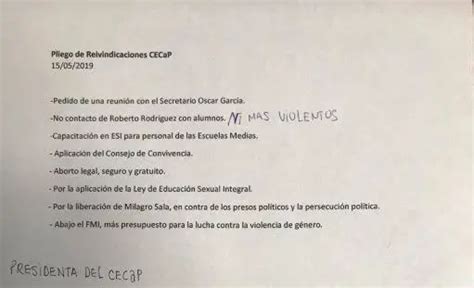 Pliego de Reivindicaciones CECaP
15/05/2019
-Pedido de una reunión con el Secretario Oscar García.
-No contacto de Roberto Rodriguez con alumnos. Ni MAS VIOLENTOS
-Capacitación en ESI para personal de las Escuelas Medias.
- Aplicación del Consejo de Convivencia.
- Aborto legal, seguro y gratuito.
- Por la aplicación de la Ley de Educación Sexual Integral.
- Por la liberación de Milagro Sala, en contra de los presos políticos y la persecución política.
- Abajo el FMI, más presupuesto para la lucha contra la violencia de género.
PRESIDENTA DEL CECaP